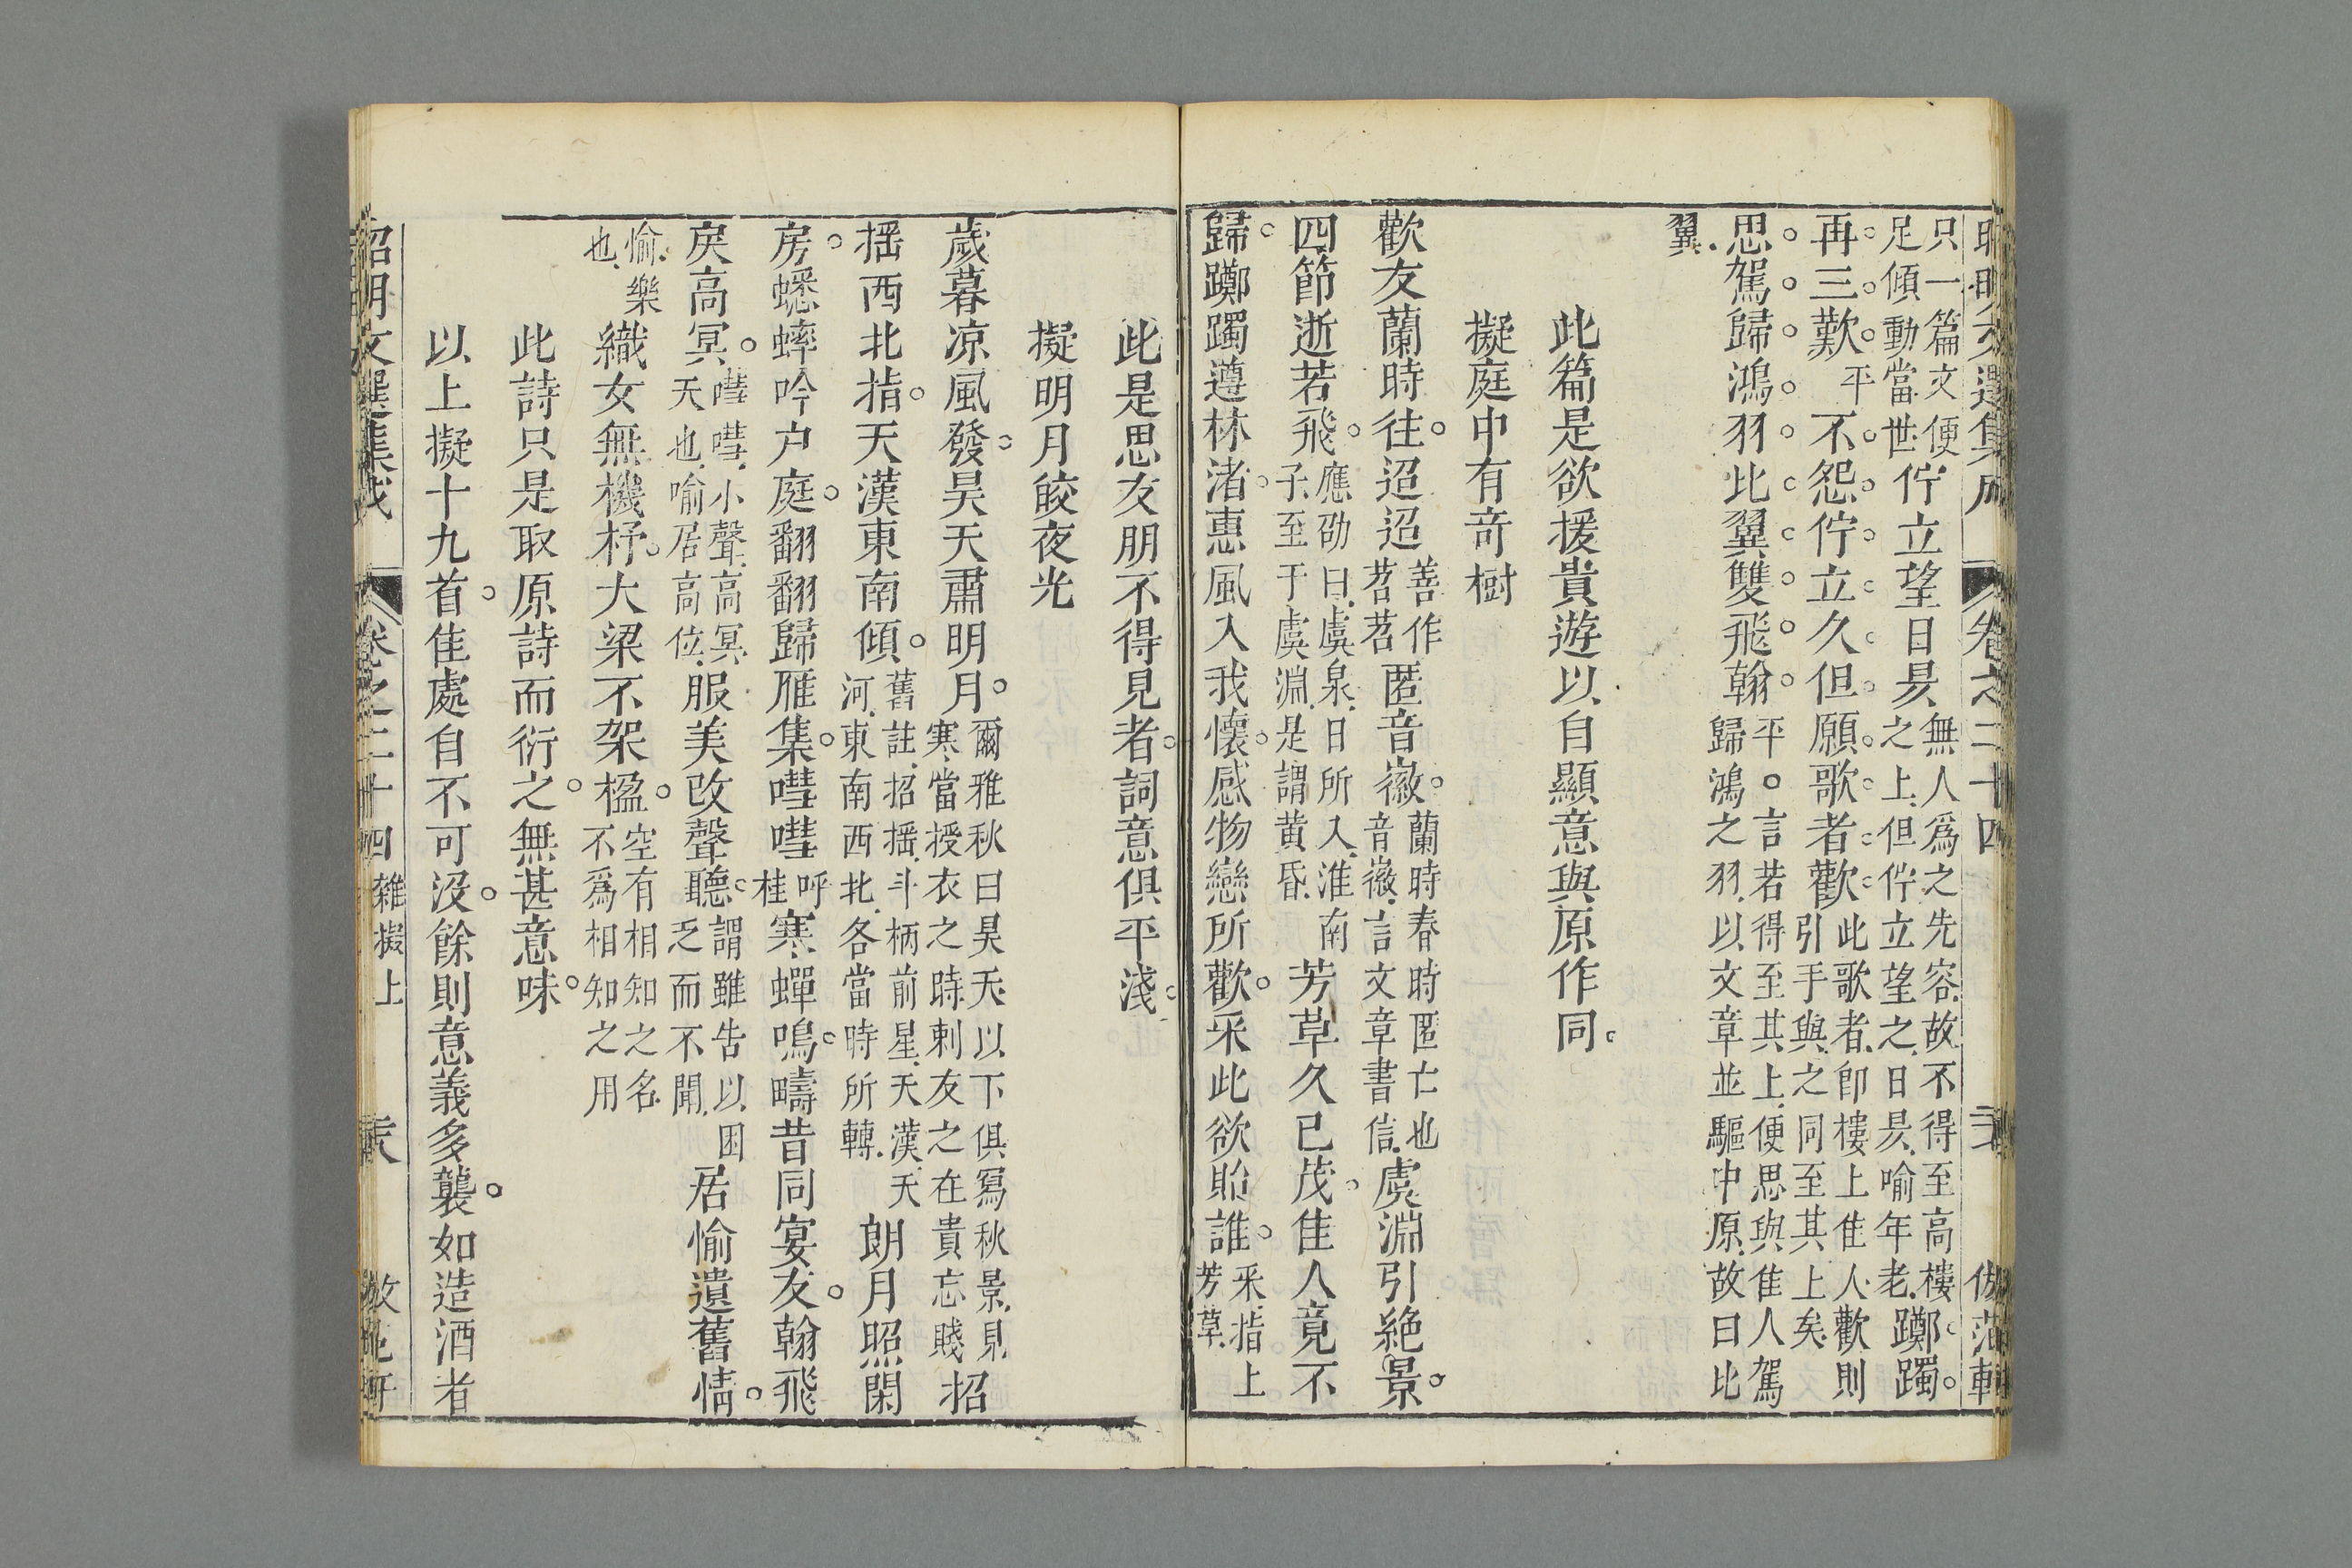 昭明文選集成 卷之二十四 倣范軒
只一篇文便足傾動當世佇立望日昃無人爲之先容故不得至高樓之上但佇立望之日昃喻年老躑躅
再三歎平不怨佇立久但願歌者歡此歌者卽樓上佳人歡則引手與之同至其上矣
思駕歸鴻羽比翼雙飛翰平言若得至其上便思與佳人駕歸鴻之羽以文章並驅中原故曰比
翼
此篇是欲援貴遊以自顯意與原作同
擬庭中有奇樹
歡友蘭時往迢迢善作苕苕匿音徽蘭時春時匿亡也音徽言文章書信虞淵引絶景
四節逝若飛應劭曰虞泉日所入淮南子至于虞淵是謂黄昏芳草久已茂佳人竟不
歸躑躅遵林渚惠風入我懷感物戀所歡采此欲貽誰采指上芳草
此是思友朋不得見者詞意俱平淺
擬明月皎夜光
歲暮凉風發昊天肅明月爾雅秋曰昊天以下俱寫秋景見寒當授衣之時刺友之在貴忘賤招
揺西北指天漢東南傾舊註招揺斗柄前星天漢天河東南西北各當時所轉朗月照閑
房蟋蟀吟户庭翻翻歸雁集嘒嘒呼桂寒蟬鳴疇昔同宴友翰飛
戾高冥嘒嘒小聲高冥天也喻居高位服美改聲聽謂雖告以困乏而不聞居愉遺舊情
愉樂也織女無機杼大梁不架楹空有相知之名不爲相知之用
此詩只是取原詩而衍之無甚意味
以上擬十九首佳處自不可沒餘則意義多襲如造酒者
昭明文選集成 卷之二十四 雜擬上